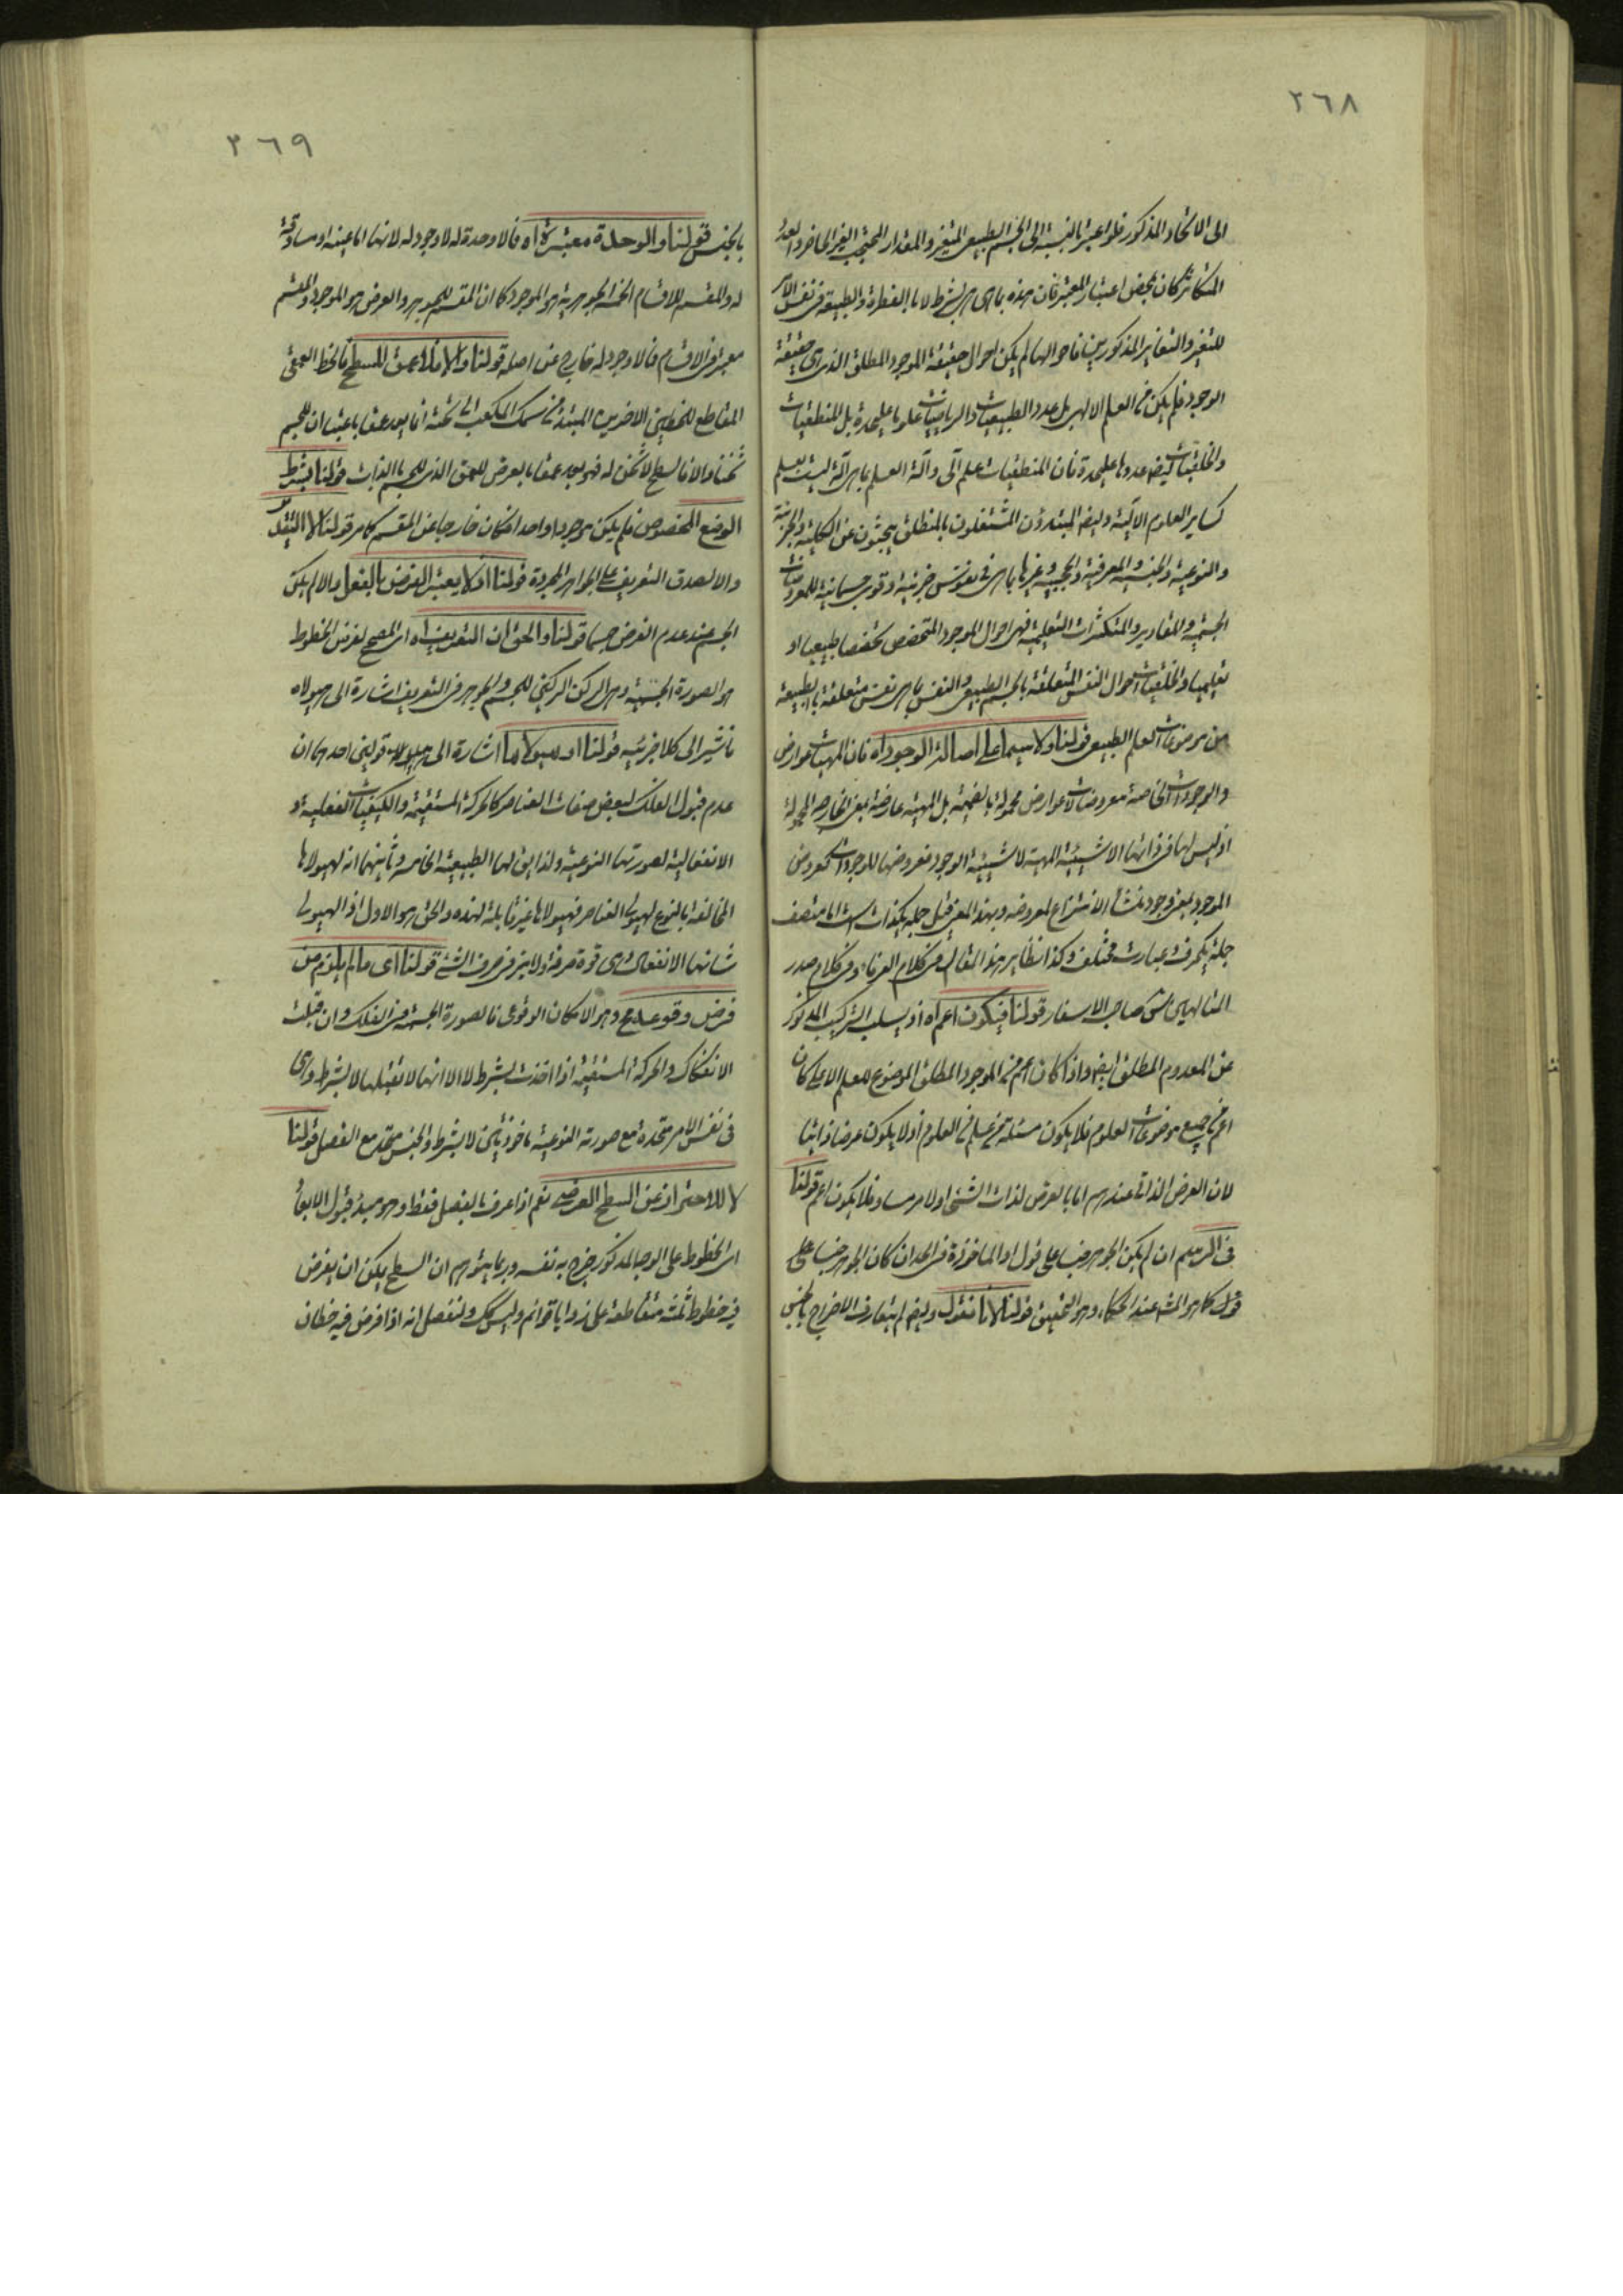 ٢٦٨
الى الاتحاد المذكور فلو اعتبر بالنسبة الى الجسم الطبيعى المتغير والمقدار
المتكاثر كان بمحض اعتبار المعتبر فان هذه بما هى هى بشرط لا بالفطرة والطبيعة فى نفس الامر
للتغير والتقدير المذكورين فاحوالها لم يكن احوال حقيقة الموجود المطلق الذى هى حقيقة
الوجود فلم يكن من العلم الالهى بل عدد الطبيعيات والرياضيات علوما عليحدة بل المنطقيات
والخلقيات ايضا عدوها عليحدة فان المنطقيات علم آلى وآلة العلم بما هى آلة ليست بعلم
كساير العلوم الآلية وايضا المبتدؤن المشتغلون بالمنطق يبحثون عن الكلية والجزئية
والنوعية والجنسية والمعرفية والحجية وغيرها بما هى فى نفوس جزئية او قوى جسمانية للمعروضات
الجسمية والمقادير والمتكثرات التعليمية فهى احوال الموجود المتخصص تخصصا طبيعيا او
تعليميا والخلقيات احوال النفس المتعلقة بالجسم الطبيعى والنفس بما هى نفس متعلقة بالطبيعة
من موضوعات العلم الطبيعى قولنا ولا سيما على اصالة الوجود اه فان المهيات عوارض
والوجودات الخاصة معروضات لا عوارض محمولة بالضميمة بل المهية عارضة بمعنى الخارجة المحمولة
اذ ليس لها فى ذاتها الا شيئية المهية لا شيئية الوجود فعروضها للوجودات كعروض
الموجود بمعنى وجود منشأ الانتزاع لمعروضه وبهذا المعنى قيل جمله يكذات است اما متصف
جمله يكحرف وعبارت مختلف وكذا نظاير هذا المقال فى كلام العرفاء وفى كلام صدر
المتالهين س صاحب الاسفار قولنا فيكون اعم اه اذ يسلب التركيب المذكور
عن المعدوم المطلق ايضا واذا كان اعم من الموجود المطلق الموضوع للعلم الاعلى كان
اعم من جميع موضوعات العلوم فلا يكون مسئلة من علم من العلوم اذ لا يكون عرضا ذاتيا
لان العرض الذاتى عندهم اما ما يعرض لذات الشئ او لامر مساو فلا يكون اعم قولنا
فى الرسم ان لم يكن الجوهر جنسا على قول او الماخوذة فى الحد ان كان الجوهر جنسا على
قول كما هو المش عند الحكماء وهو التحقيق قولنا لانا نقول وايضا لم يتعارف الاخراج بالجنس
٢٦٩
بالجنس قولنا والوحدة معتبرة اه فما لا وحدة له لا وجود له لانها اما عينه او مساوقة
له والمقسم للاقسام الخمسة الجوهرية هو الموجود كما ان المقسم للجوهر والعرض هو الموجود والمقسم
معتبر فى الاقسام فما لا وجود له خارج عن اصله قولنا والا فلا عمق للسطح فالخط العمقى
المقاطع للخطين الاخرين المبتدء من سمك المكعب الى تحته انما يعد عمقا باعتبار ان للجسم
ثخنا والا فالسطح لا ثخن له فهو يعد عمقا بالعرض للعمق الذى للجسم بالذات قولنا بشرط
الوضع المخصوص فلم يكن موجودا واحدا فكان خارجا عن المقسم كما مر قولنا لا التقدر
والا لصدق التعريف على الجواهر المجردة قولنا اذ لا يعتبر الفرض بالفعل والا لم يكن
الجسم عند عدم الفرض جسما قولنا والحق ان التعريف اه اى المصحح لفرض الخطوط
هو الصورة الجسمية وهى الركن الركين للجسم والجوهر فى التعريف اشارة الى هيولاه
فاشير الى كلا جزئيه قولنا او هيولاها اشارة الى قولين احدهما ان
عدم قبول الفلك لبعض صفات العناصر كالحركة المستقيمة والكيفيات الفعلية و
الانفعالية لصورتها النوعية ولذا يق لها الطبيعة الخامسة وثانيهما انه لهيولاها
المخالفة بالنوع لهيولى العناصر فهيولاها غير قابلة لهذه والحق هو الاول اذ الهيولى
شانها الانفعال وهى قوة صرفة ولا ميز فى صرف الشئ قولنا اى ما لم يلزم من
فرض وقوعه مح وهو الامكان الوقوعى فالصورة الجسمية فى الفلك وان قبلت
الانفكاك والحركة المستقيمة اذا اخذت بشرط لا الا انها لا تقبلها لا بشرط وهى
فى نفس الامر متحدة مع صورته النوعية ماخوذتين لا بشرط والجنس متحد مع الفصل قولنا
لا للاحتراز عن السطح العرضى نعم اذا عرف بالفصل فقط وهو مبدء قبول الابعاد
اى الخطوط على الوجه المذكور خرج به نفسه وربما يتوهم ان السطح يمكن ان يفرض
فيه خطوط ثلثة متقاطعة على زوايا قوائم وليس كك ولنفصل انه اذا فرض فيه خطان